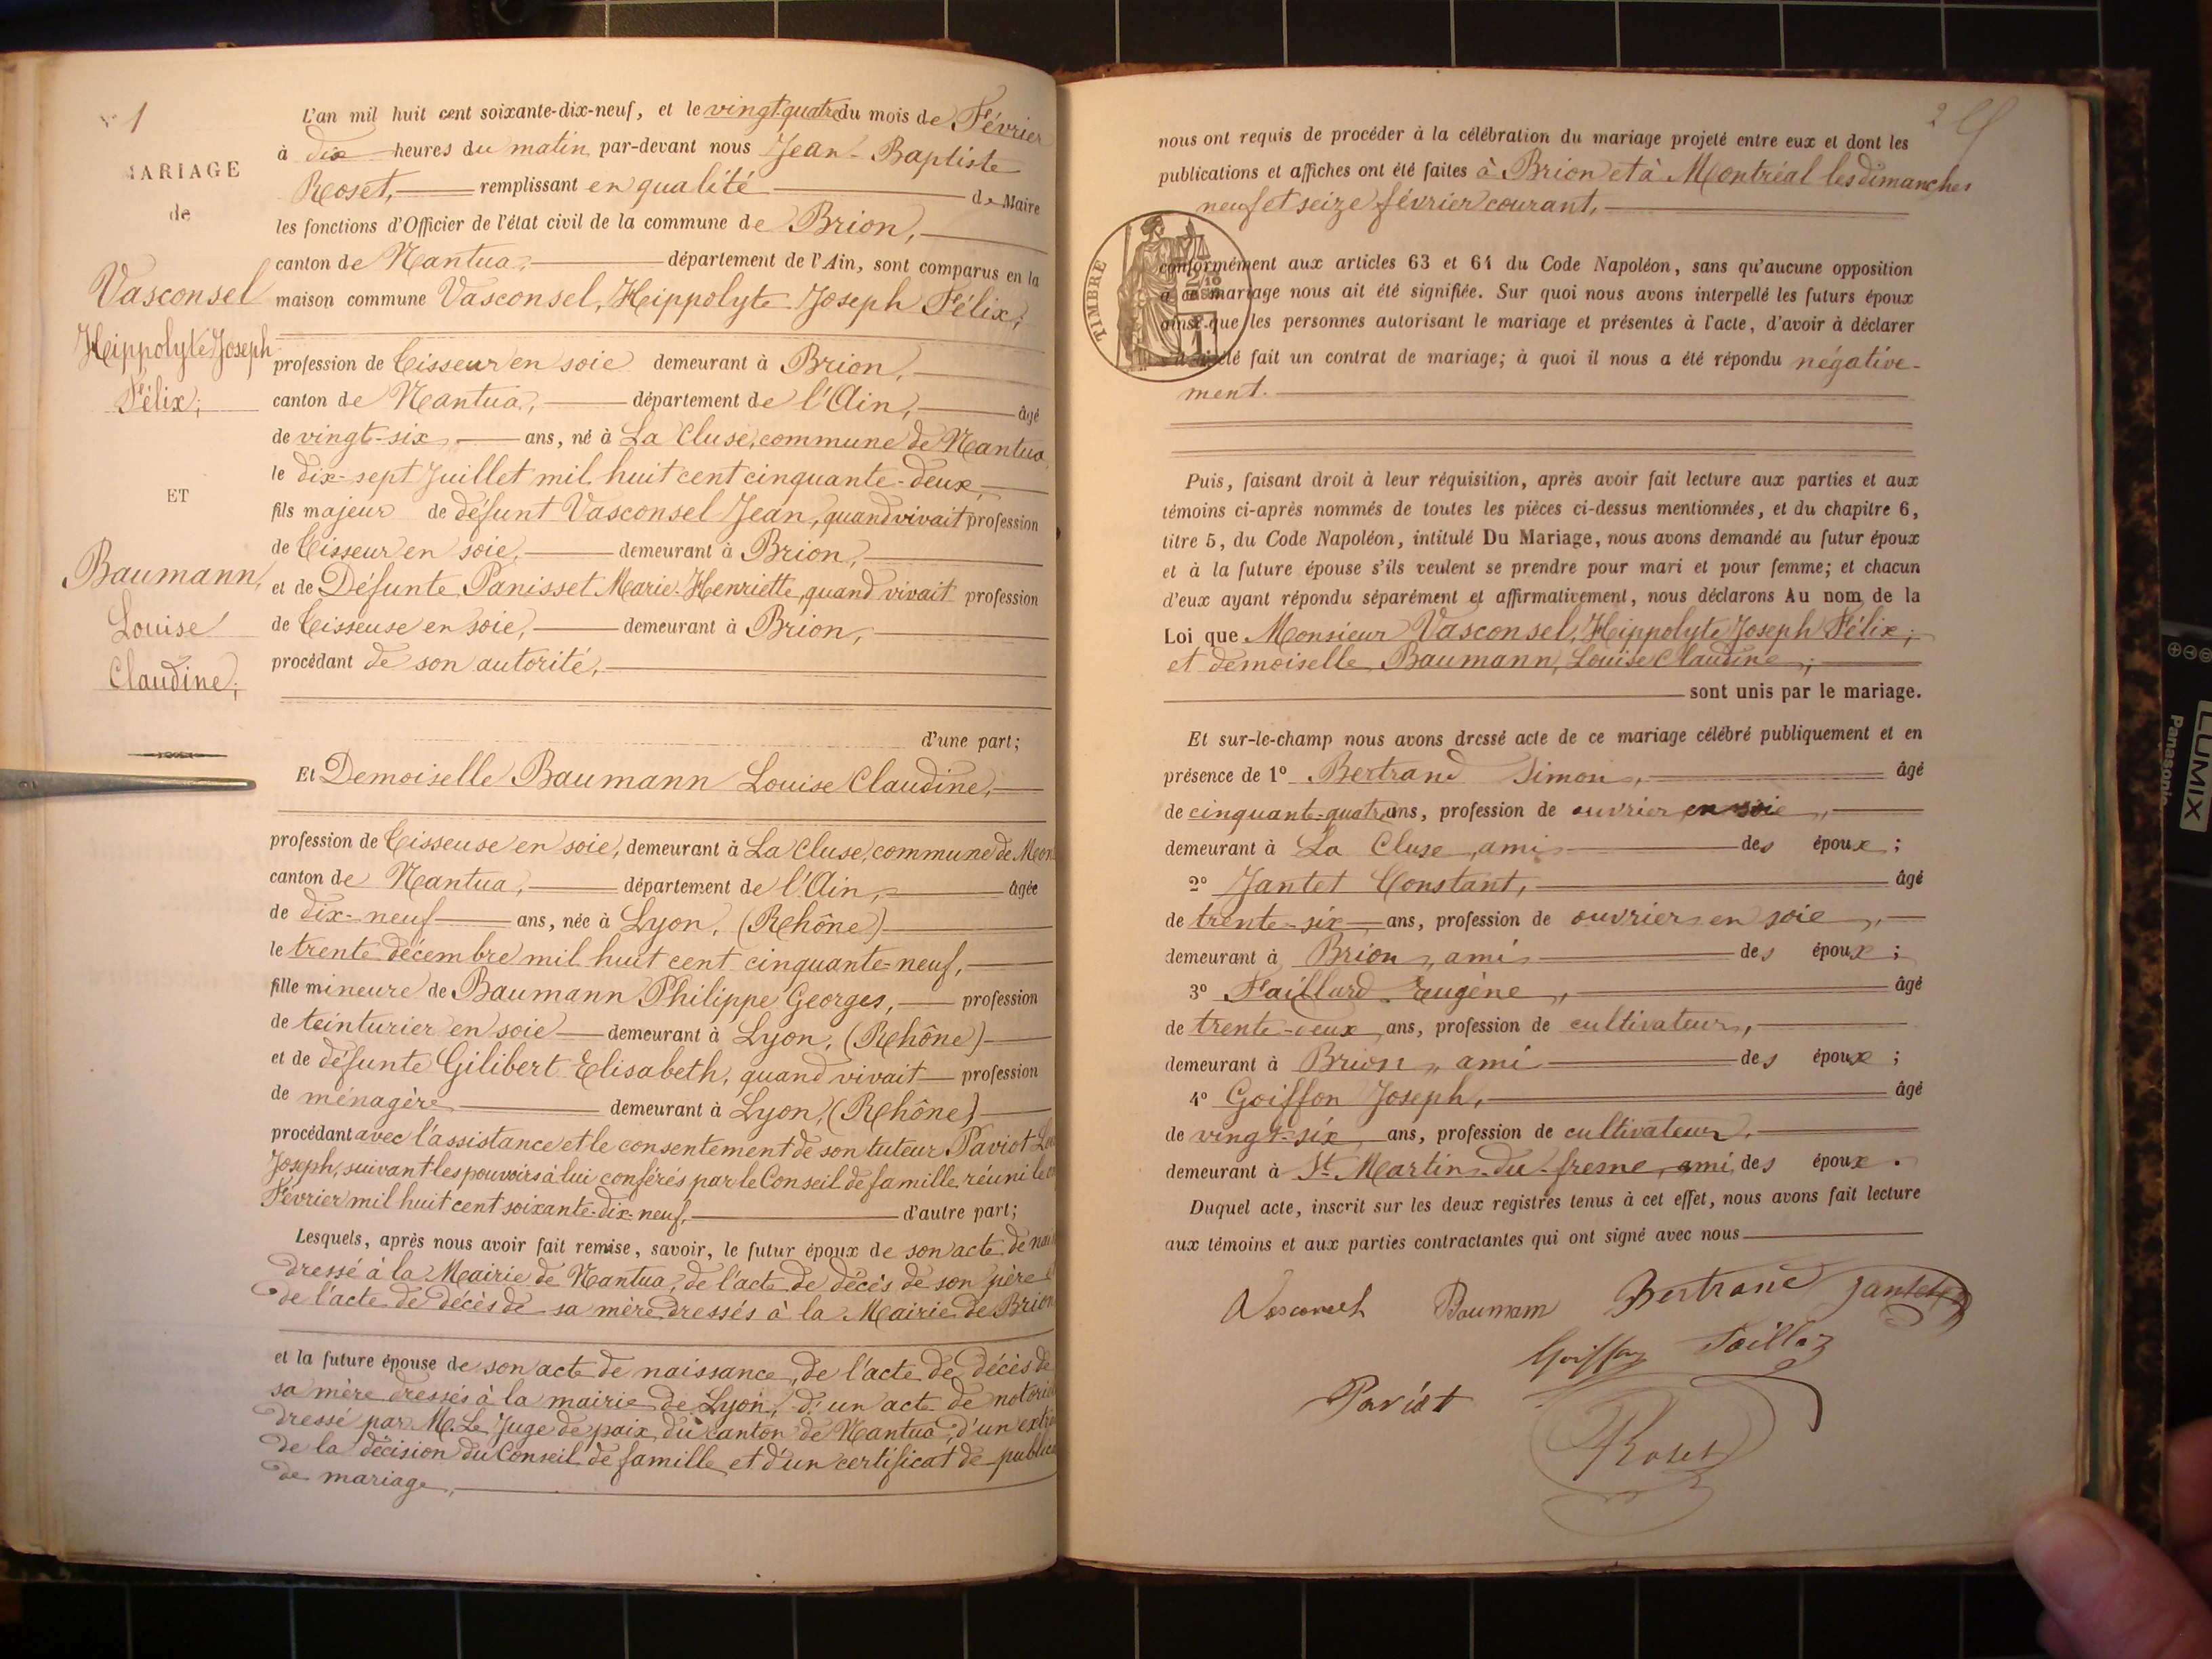 n° 1
MARIAGE
de
Vasconsel
Hippolyte Joseph
Félix;
ET
Baumann,
Louise
Claudine;
L'an mil huit cent soixante-dix-neuf, et le vingt-quatre du mois de Février
à dix heures du matin par-devant nous Jean-Baptiste
Roset, remplissant en qualité de Maire
les fonctions d'Officier de l'état civil de la commune de Brion,
canton de Nantua, département de l'Ain, sont comparus en la
maison commune Vasconsel, Hippolyte Joseph Félix,
profession de Tisseur en soie demeurant à Brion,
canton de Nantua, département de l'Ain, âgé
de vingt-six, ans, né à La Cluse, commune de Nantua
le dix-sept Juillet mil huit cent cinquante-deux,
fils majeur de défunt Vasconsel Jean, quand vivait profession
de Tisseur en soie, demeurant à Brion,
et de Défunte Panisset Marie-Henriette, quand vivait profession
de Tisseuse en soie, demeurant à Brion,
procédant de son autorité,
d'une part;
Et Demoiselle Baumann Louise Claudine,
profession de Tisseuse en soie, demeurant à La Cluse, commune de Mon
canton de Nantua, département de l'Ain, âgée
de dix-neuf ans, née à Lyon, (Rhône)
le trente décembre mil huit cent cinquante-neuf,
fille mineure de Baumann Philippe Georges, profession
de teinturier en soie demeurant à Lyon, (Rhône)
et de défunte Gilibert Elisabeth, quand vivait profession
de ménagère demeurant à Lyon, (Rhône)
procédant avec l'assistance et le consentement de son tuteur Paviot
Joseph, suivant les pouvoirs à lui conférés par le Conseil de famille réuni le
Février mil huit cent soixante-dix-neuf, d'autre part;
Lesquels, après nous avoir fait remise, savoir, le futur époux de son acte de nai
dressé à la Mairie de Nantua, de l'acte de décès de son père
de l'acte de décès de sa mère dressés à la Mairie de Brion
et la future épouse de son acte de naissance, de l'acte de décès de
sa mère dressés à la mairie de Lyon, d'un acte de notorié
dressé par M. Le Juge de paix du canton de Nantua, d'un extra
de la décision du Conseil de famille et d'un certificat de publica
de mariage,
2
nous ont requis de procéder à la célébration du mariage projeté entre eux et dont les
publications et affiches ont été faites à Brion et à Montréal les dimanches
neuf et seize février courant,
TIMBRE
conformément aux articles 63 et 64 du Code Napoléon, sans qu'aucune opposition
à ce mariage nous ait été signifiée. Sur quoi nous avons interpellé les futurs époux
ainsi que les personnes autorisant le mariage et présentes à l'acte, d'avoir à déclarer
s'il a été fait un contrat de mariage; à quoi il nous a été répondu négative-
ment.
Puis, faisant droit à leur réquisition, après avoir fait lecture aux parties et aux
témoins ci-après nommés de toutes les pièces ci-dessus mentionnées, et du chapitre 6,
titre 5, du Code Napoléon, intitulé Du Mariage, nous avons demandé au futur époux
et à la future épouse s'ils veulent se prendre pour mari et pour femme; et chacun
d'eux ayant répondu séparément et affirmativement, nous déclarons Au nom de la
Loi que Monsieur Vasconsel, Hippolyte Joseph Félix;
et demoiselle Baumann, Louise Claudine;
sont unis par le mariage.
Et sur-le-champ nous avons dressé acte de ce mariage célébré publiquement et en
présence de 1° Bertrand Simon, âgé
de cinquante-quatre ans, profession de ouvrier en soie,
demeurant à La Cluse, ami des époux;
2° Jantet Constant, âgé
de trente-six ans, profession de ouvrier en soie,
demeurant à Brion, ami des époux;
3° Faillard Eugène, âgé
de trente-deux ans, profession de cultivateur,
demeurant à Brion, ami des époux;
4° Goiffon Joseph, âgé
de vingt-six ans, profession de cultivateur,
demeurant à St Martin-du-fresne, ami des époux.
Duquel acte, inscrit sur les deux registres tenus à cet effet, nous avons fait lecture
aux témoins et aux parties contractantes qui ont signé avec nous
Vasconsel Baumann Bertrand Jantet
Goiffon
Paviot
Roset
LUMIX
Panasonic